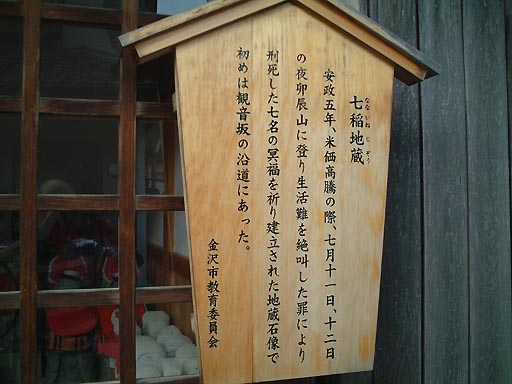 七稲地蔵
なな いね じ ぞう
安政五年、米価高騰の際、七月十一日、十二日
の夜卯辰山に登り生活難を絶叫した罪により
刑死した七名の冥福を祈り建立された地蔵石像で
初めは観音坂の沿道にあった。
金沢市教育委員会